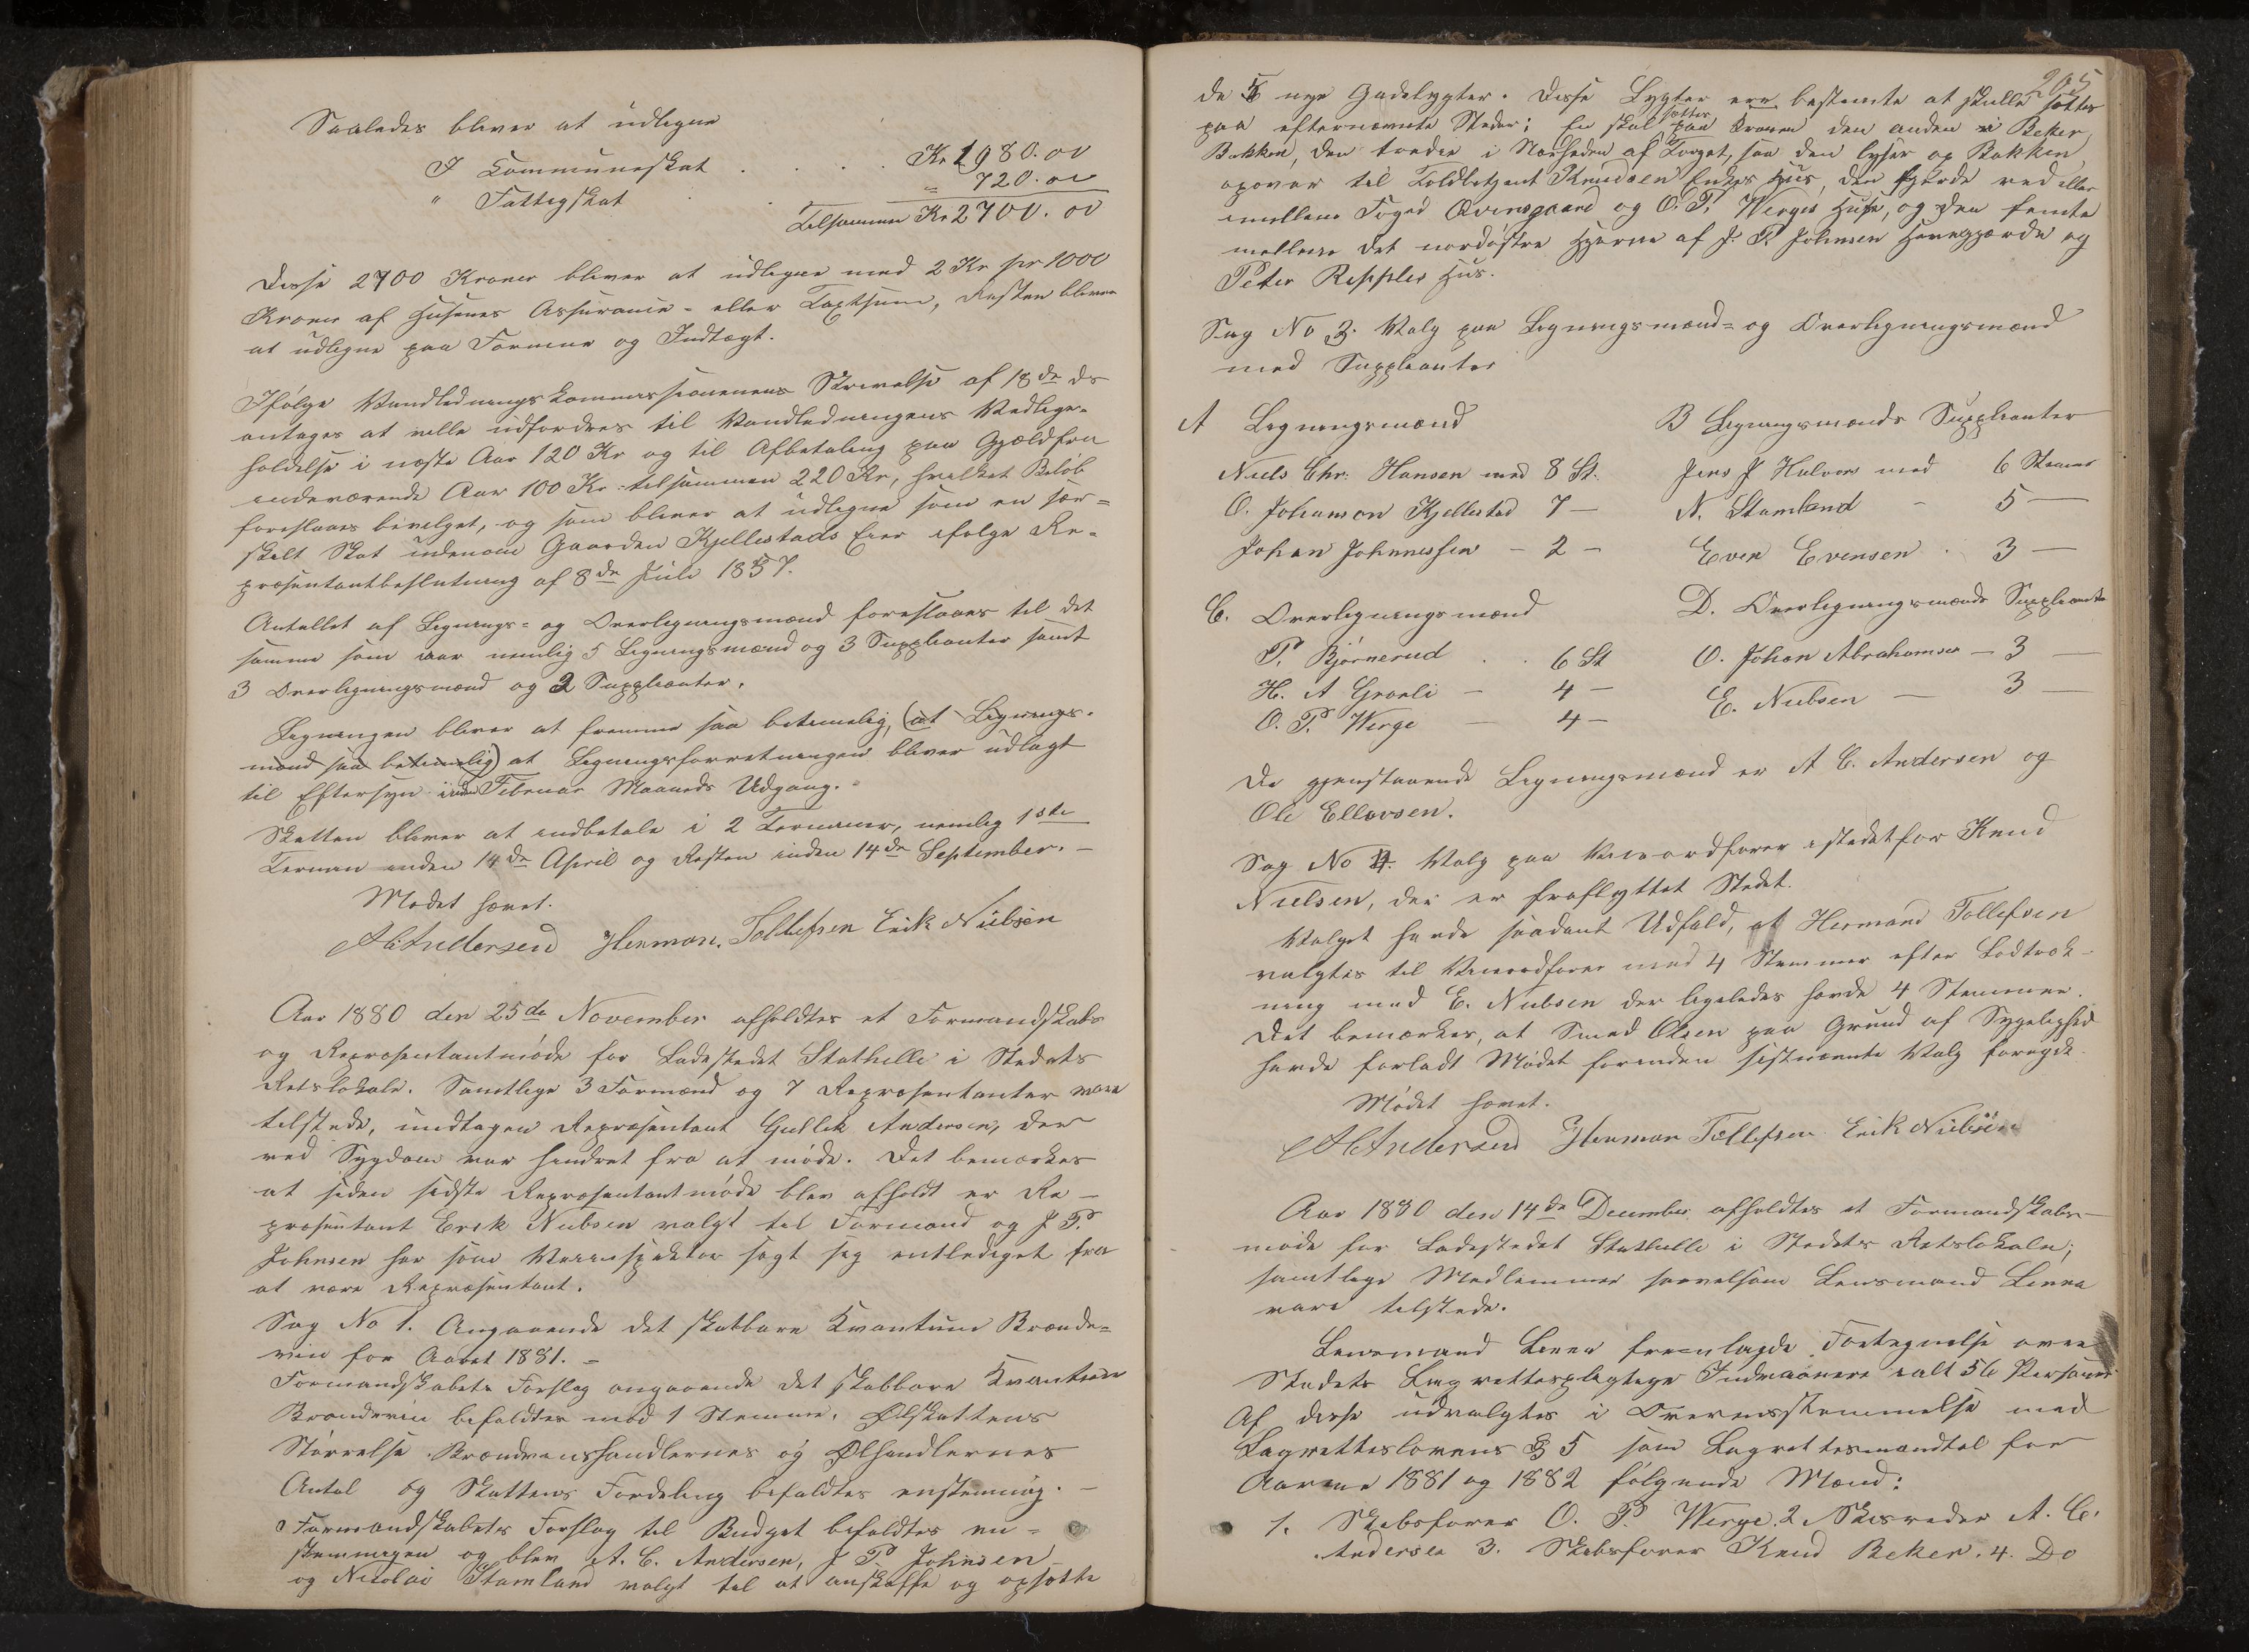 Saaledes bliver at udligne
I Communeskat . . . Kr 1980.00
" Fattigskat . . " 720.00
Tilsammen Kr 2700.00
Disse 2700 Kroner bliver at udligne med 2 Kr pr 1000
Kroner af Husenes Assurance- eller Taxtsum, Resten bliver
at udligne paa Formue og Indtægt.
Ifølge Vandledningskommissionenens Skrivelse af 18de ds
antages at ville udfordres til Vandledningens Vedlige-
holdelse i næste Aar 120 Kr og til Afbetaling paa Gjæld fra
indeværende Aar 100 Kr tilsammen 220 Kr, hvilket Beløb
foreslaaes bevilget, og som bliver at udligne som en sær-
skilt Skat udenom Gaarden Kjellestads Eier ifølge Re-
præsentantbeslutning af 8de Juli 1857.
Antallet af Lignings- og Overligningsmænd foreslaaes til det
samme som iaar nemlig 5 Ligningsmænd og 3 Suppleanter samt
3 Overligningsmænd og 2 Suppleanter.
Ligningen bliver at fremme saa betimelig, (at Lignings-
mænd saa betimelig) at Ligningsforretningen bliver udlagt
til Eftersyn inden Februar Maaneds Udgang.
Skatten bliver at indbetale i 2 Terminer, nemlig 1ste
Termin inden 14de April og Resten inden 14de September. -
Mødet hævet.
A C Andersen Herman Tollefsen Erik Nielsen
Aar 1880 den 25de November afholdtes et Formandskabs
og Repræsentantmøde for Ladestedet Stathelle i Stedets
Retslokale. Samtlige 3 Formænd og 7 Repræsentanter vare
tilstede, undtagen Repræsentant Gullik Andersen, der
ved Sygdom var hindret fra at møde. Det bemærkes
at siden sidste Repræsentantmøde blev afholdt er Re-
præsentant Erik Nielsen valgt til Formand og J P.
Johnsen har som Veiinspektør sagt sig entlediget fra
at være Repræsentant.
Sag No 1. Angaaende det skatbare Kvantum Brænde-
vin for Aaret 1881. -
Formandskabets Forslag angaaende det skatbare Kvantum
Brændevin bifaldtes mod 1 Stemme. Ølskattens
Størrelse Brændvinshandlernes og Ølhandlernes
Antal og Skattens Fordeling bifaldtes enstemmig. -
Formandskabets Forslag til Budget bifaldtes en-
stemmigen og blev A. C. Andersen, J P. Johnsen
og Nicolai Stamland valgt til at anskaffe og opsætte
205
de 5 nye Gadelygter. Disse Lygter ere bestemte at skulle sættes
paa efternævnte Steder: En skal sættes paa Kronen den anden i Beker
Bakken, den tredie i Nærheden af Torget, saa den lyser op Bakken
opover til Toldbetjent Knudsen Enkes Hus, den fjerde ved eller
imellem Foged Qvensgaard og O. P. Werges Huse, og den femte
mellem det nordøstre Hjørne af J. P. Johnsen Havegjærde og
Peter Repples Hus.
Sag No 3. Valg paa Ligningsmænd- og Overligningsmænd
med Suppleanter
A Ligningsmænd
Niels Chr. Hansen med 8 St.
O. Johanson Kjellestad 7 -
Johan Johannessen - 2 -
B Ligningsmænds Suppleanter
Jens J Halvors med 6 Stemmer
N. Stamland - 5 -
Even Evensen . 3 -
C. Overligningsmænd
P. Bjørnerud . . 6 St
H. A Graali - 4 -
O. P. Werge - 4 -
D. Overligningsmænds Suppleanter
O. Johan Abrahamsen - 3 -
E. Nielsen - 3 -
De gjenstaaende Ligningsmænd er A C. Andersen og
Ole Ellevsen.
Sag No 4. Valg paa Viceordfører istedetfor Knud
Nielsen, der er fraflyttet Stedet.
Valget havde saadant Udfald, at Hermand Tollefsen
valgtes til Viceordfører med 4 Stemmer efter Lodtræk-
ning med E. Nielsen der ligeledes havde 4 Stemmer.
Det bemærkes, at Smed Olsen paa Grund af Sygelighed
havde forladt Mødet forinden sistnævnte Valg foregik.
Mødet hævet.
A C Andersen Herman Tollefsen Erik Nielsen
Aar 1880 den 14de December afholdtes et Formandskabs-
møde for Ladestedet Stathelle i Stedets Retslokale;
samtlige Medlemmer saavelsom Lensmand Linna
vare tilstede.
Lensmand Linna fremlagde Fortegnelse over
Stedets Lagrettespligtige Indvaanere ialt 56 Personer
Af disse udvalgtes i Overensstemmelse med
Lagretteslovens § 5 som Lagrettesmandtal for
Aarene 1881 og 1882 følgende Mænd:
1. Skibsfører O. P. Werge. 2. Skibsreder A. C.
Andersen 3. Skibsfører Knud Beker. 4. Do